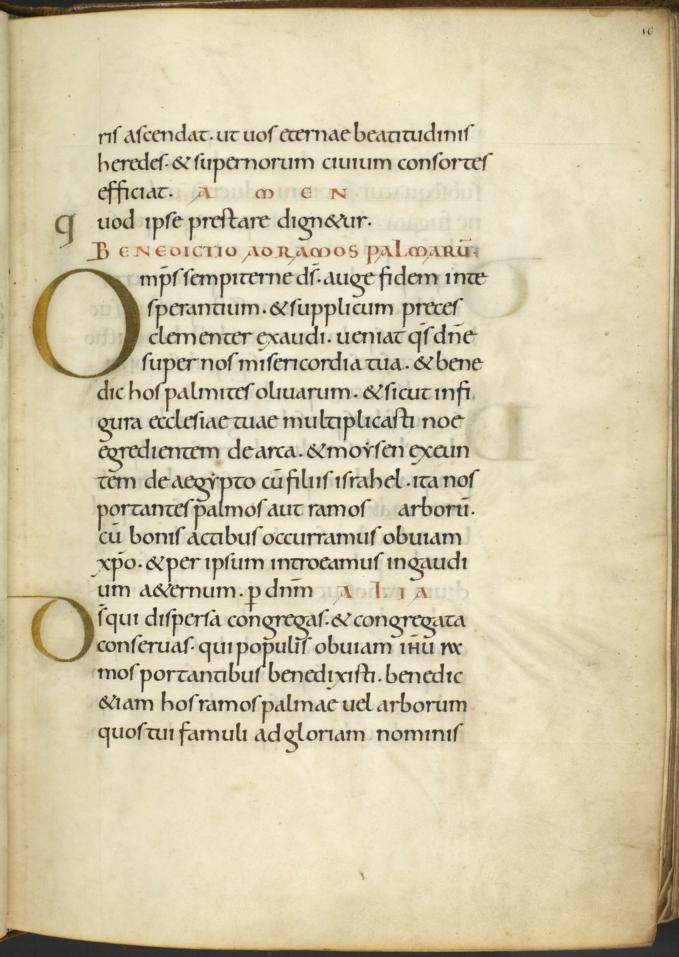 16
ris ascendat. ut uos eternae beatitudinis
heredes. & supernorum ciuium consortes
efficiat. A M E N
quod ipse prestare dign&ur.
BENEDICTIO AD RAMOS PALMARŪ.
Omp̄s sempiterne d̄s. auge fidem inte
sperantium. & supplicum preces
clementer exaudi. ueniat q̄s dn̄e
super nos misericordia tua. & bene
dic hos palmites oliuarum. & sicut infi
gura ecclesiae tuae multiplicasti noe
egredientem de arca. & moẏsen exeun
tem de aegẏpto cū filiis israhel. ita nos
portantes palmos aut ramos arborū.
cū bonis actibus occurramus obuiam
xp̄o. & per ipsum introeamus in gaudi
um a&ernum. p̄ dnm̄ A L I A
Ds̄ qui dispersa congregas. & congregata
conseruas. qui populis obuiam ih̄u ra
mos portantibus benedixisti. benedic
&iam hos ramos palmae uel arborum
quos tui famuli ad gloriam nominis